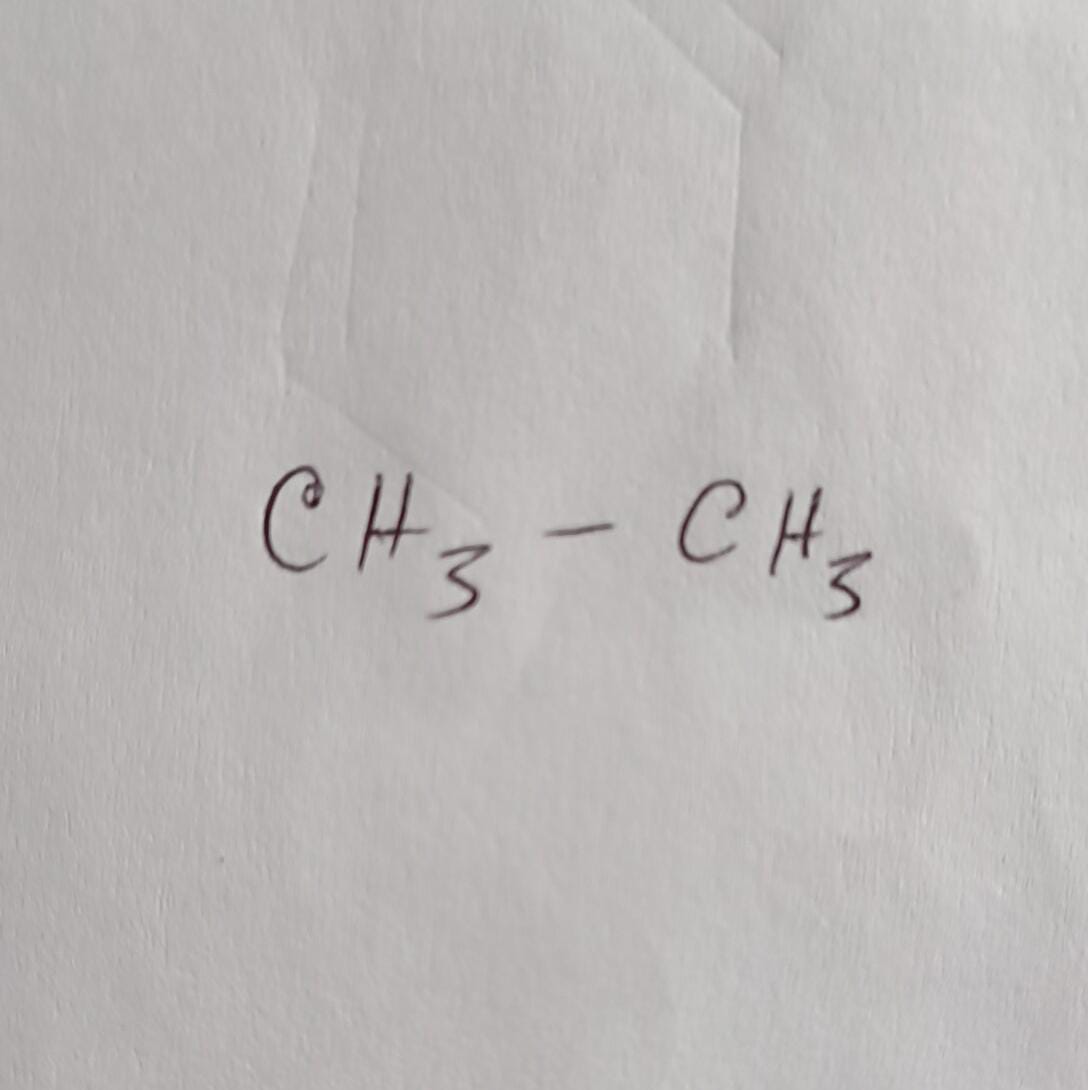 CH₃ - CH₃